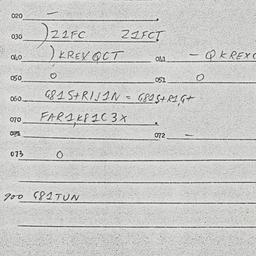 020 –
030 )21FC 21FCT
040 )KREVQCT 041 – QKREXC
050 0 051 0
060 G81S+RIJ1N = G81S+R1G+
070 FAR1,K81C3X
071 072 –
073 0
900 G81TUN